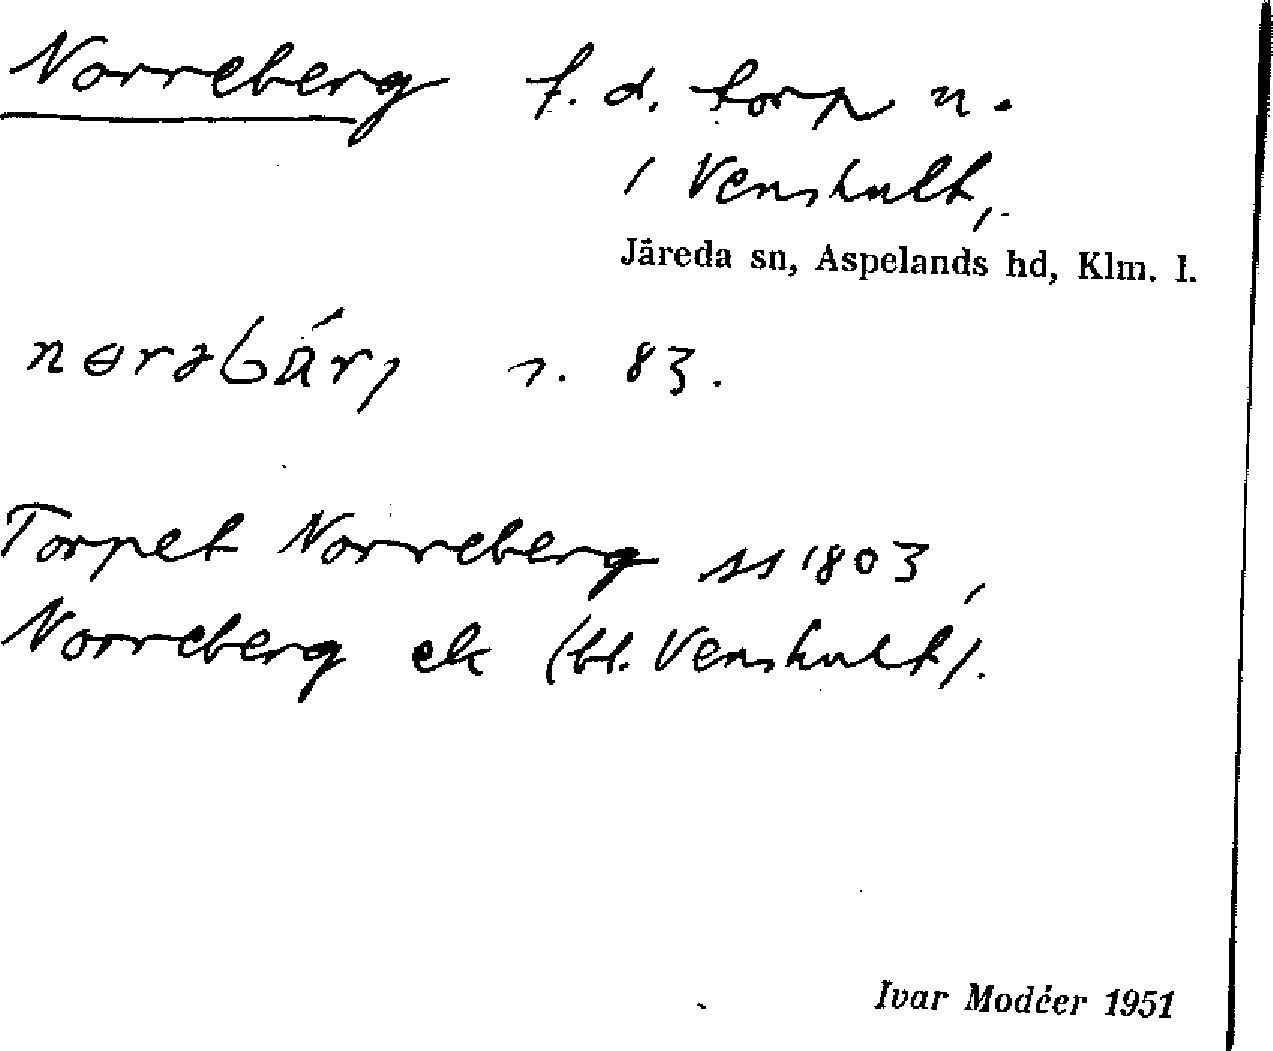 Norreberg f. d. torp n.
i Venshult,
Järeda sn, Aspelands hd, Klm. l.
s. 83.
Torpet Norreberg ss 1803,
Norreberg ek (bl. Venshult).
Ivar Modéer 1951